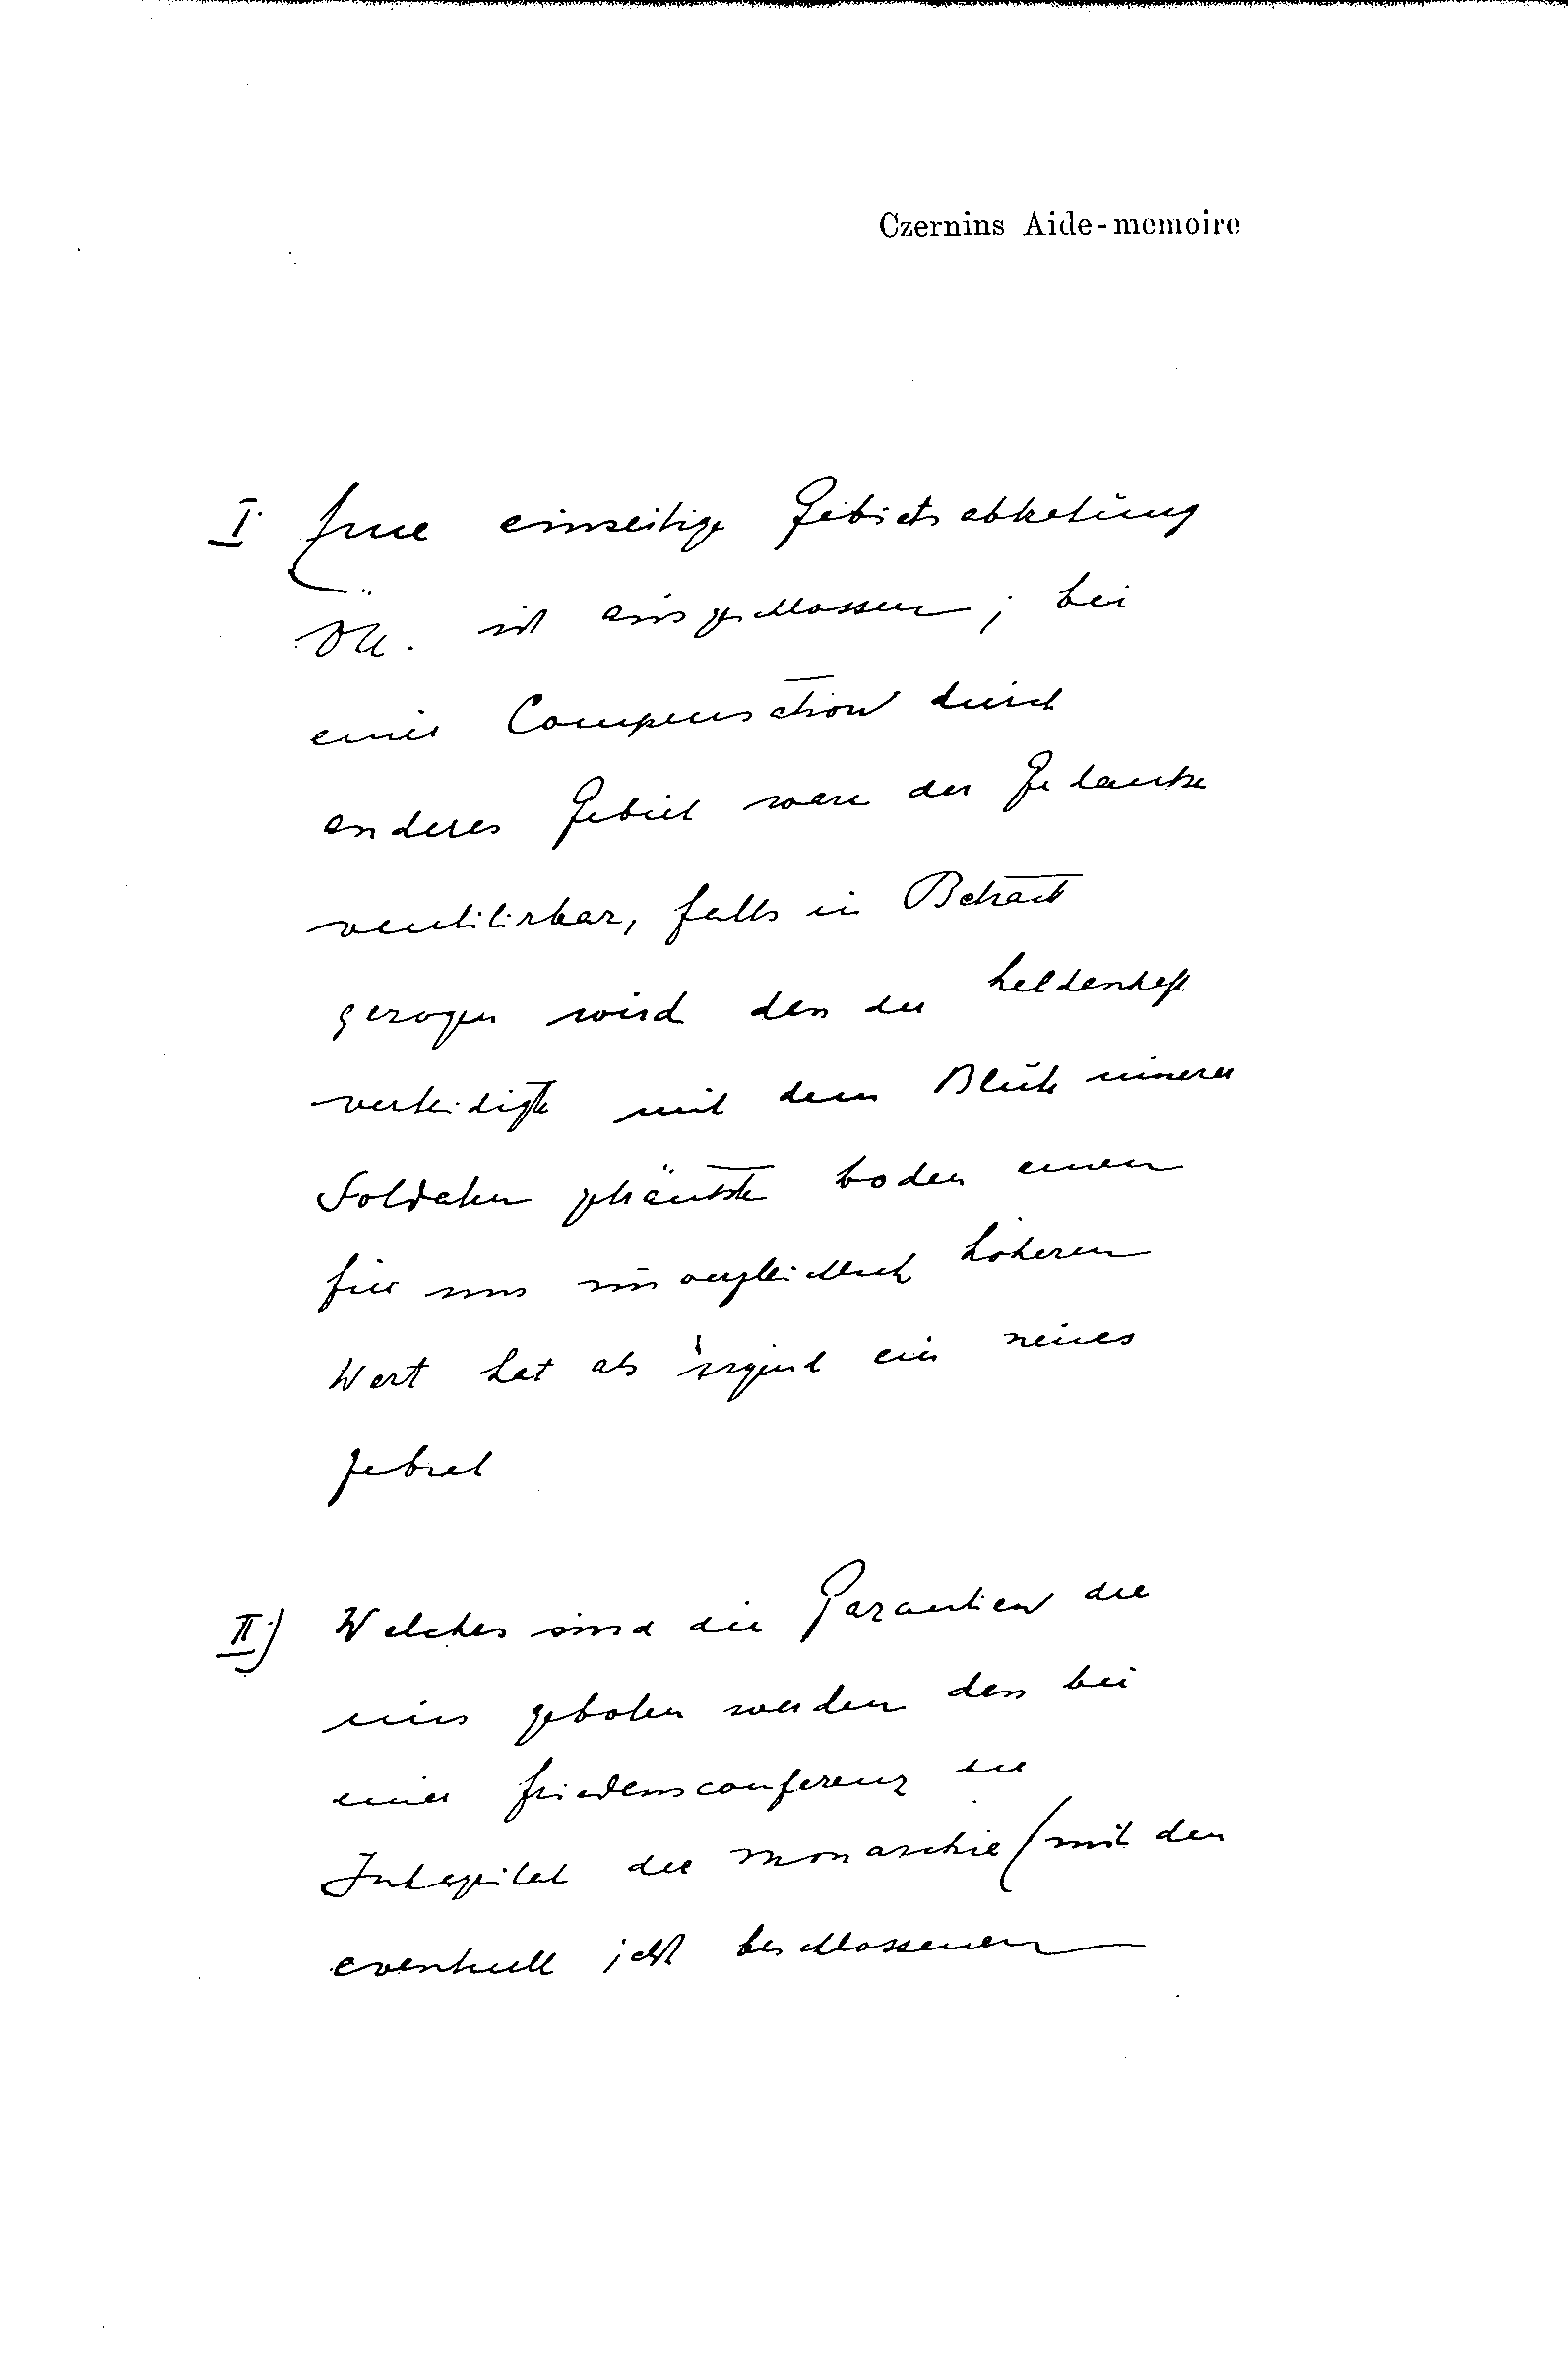 Czernins Aide-memoire
I. Eine einseitige Gebietsabtretung
ÖU. ist ausgeschlossen; bei
einer Compensation durch
anderes Gebiet wäre der Gedanke
ventilirbar, falls in Betracht
gezogen wird dass der heldenhaft
verteidigte mit dem Blute unserer
Soldaten getränkte boden einen
für uns unvergleichlich höheren
Wert hat als irgend ein neues
Gebiet
II.) Welches sind die Garantien die
uns geboten werden dass bei
einer Friedensconferenz die
Integrität der Monarchie (mit den
eventuell jetzt beschlossenen